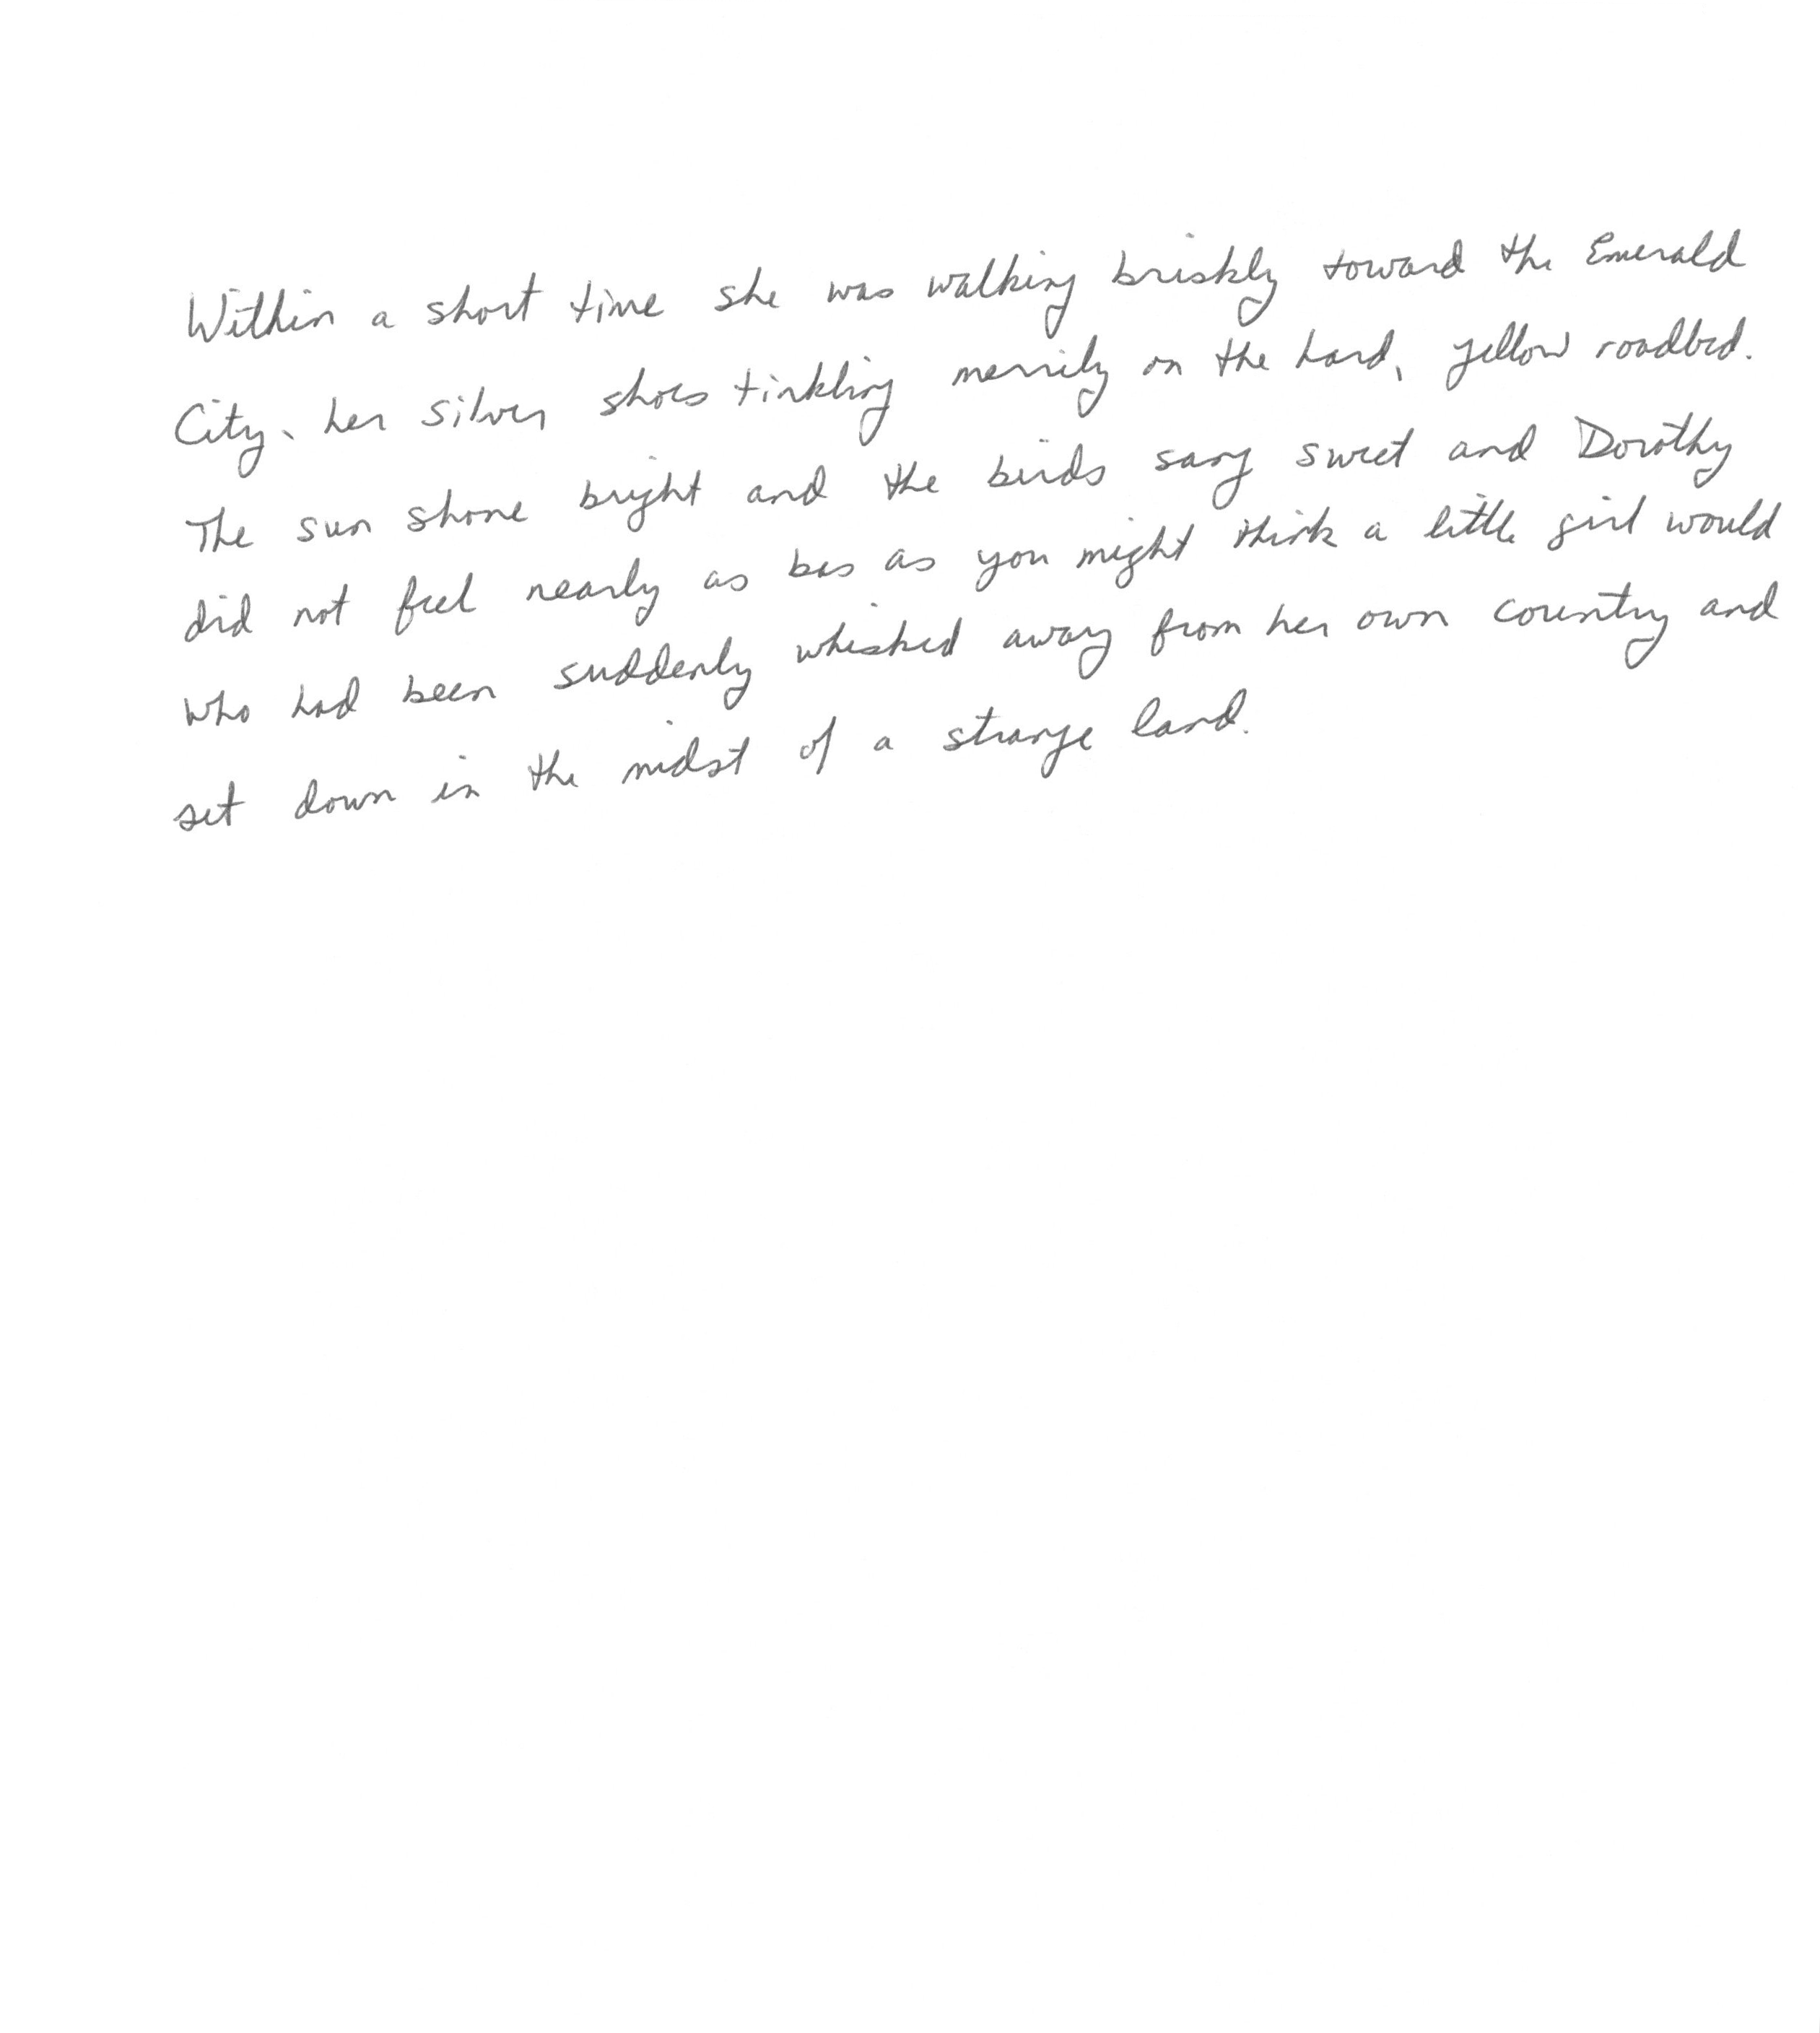 Within a short time she was walking briskly toward the Emerald
City, her silver shoes tinkling merrily on the hard, yellow roadbed.
The sun shone bright and the birds sang sweet and Dorothy
did not feel nearly as bas as you might think a little girl would
who had been suddenly whisked away from her own country and
set down in the midst of a strange land.